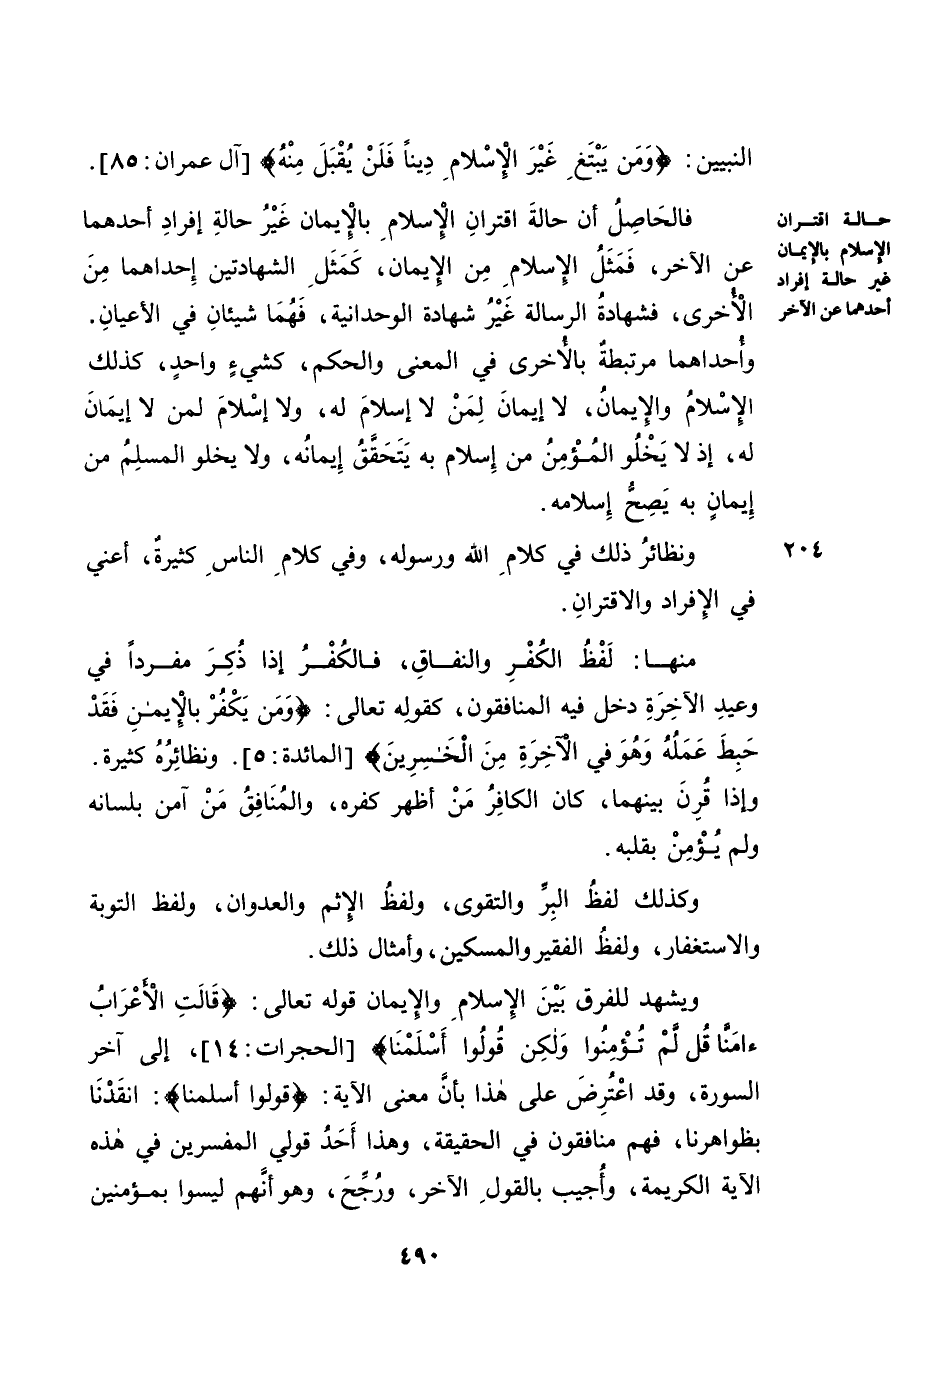 النبيين: ﴿وَمَن يَبْتَغِ غَيْرَ الْإِسْلامِ دِيناً فَلَنْ يُقْبَلَ مِنْهُ﴾ [آل عمران: ٨٥].
حالة اقتران
الإسلام بالإيمان
غير حالة إفراد
أحدهما عن الآخر
فالحَاصِلُ أن حالةَ اقترانِ الإسلامِ بالإيمان غَيْرُ حالةِ إفرادِ أحدهما
عن الآخر، فَمَثَلُ الإسلامِ مِن الإيمان، كَمَثَلِ الشهادتين إحداهما مِنَ
الأُخرى، فشهادةُ الرسالة غَيْرُ شهادة الوحدانية، فَهُمَا شيئانِ في الأعيان.
وأُحداهما مرتبطةٌ بالأُخرى في المعنى والحكم، كشيءٍ واحدٍ، كذلك
الإِسْلامُ والإيمانُ، لا إيمانَ لِمَنْ لا إسلامَ له، ولا إسْلامَ لمن لا إيمَانَ
له، إذ لا يَخْلُو المُؤمِنُ من إسلام به يَتَحَقَّقُ إيمانُه، ولا يخلو المسلِمُ من
إيمانٍ به يَصِحُّ إسلامه.
٢٠٤
ونظائرُ ذلك في كلامِ الله ورسوله، وفي كلامِ الناسِ كثيرةٌ، أعني
في الإفراد والاقترانِ.
منها: لَفْظُ الكُفْرِ والنفاقِ، فالكُفْرُ إذا ذُكِرَ مفرداً في
وعيدِ الآخِرَةِ دخل فيه المنافقون، كقوله تعالى: ﴿وَمَن يَكْفُرْ بالْإِيمٰنِ فَقَدْ
حَبِطَ عَمَلُهُ وَهُوَ في الْآخِرَةِ مِنَ الْخَٰسِرِينَ﴾ [المائدة: ٥]. ونظائِرُهُ كثيرة.
وإذا قُرِنَ بينهما، كان الكافِرُ مَنْ أظهر كفره، والمُنَافِقُ مَنْ آمن بلسانه
ولم يُؤْمِنْ بقلبه.
وكذلك لفظُ البِرِّ والتقوى، ولفظُ الإثم والعدوان، ولفظ التوبة
والاستغفار، ولفظُ الفقير والمسكين، وأمثال ذلك.
ويشهد للفرق بَيْنَ الإسلامِ والإيمان قوله تعالى: ﴿قَالَتِ الْأَعْرَابُ
ءامَنَّا قُل لَّمْ تُؤْمِنُوا وَلَٰكِن قُولُوا أَسْلَمْنَا﴾ [الحجرات: ١٤]، إلى آخر
السورة، وقد اعْتُرِضَ على هٰذا بأنَّ معنى الآية: ﴿قولوا أسلمنا﴾: انقَدْنَا
بظواهرنا، فهم منافقون في الحقيقة، وهذا أَحَدُ قولي المفسرين في هٰذه
الآية الكريمة، وأُجيب بالقولِ الآخر، ورُجِّحَ، وهو أنَّهم ليسوا بمؤمنين
٤٩٠